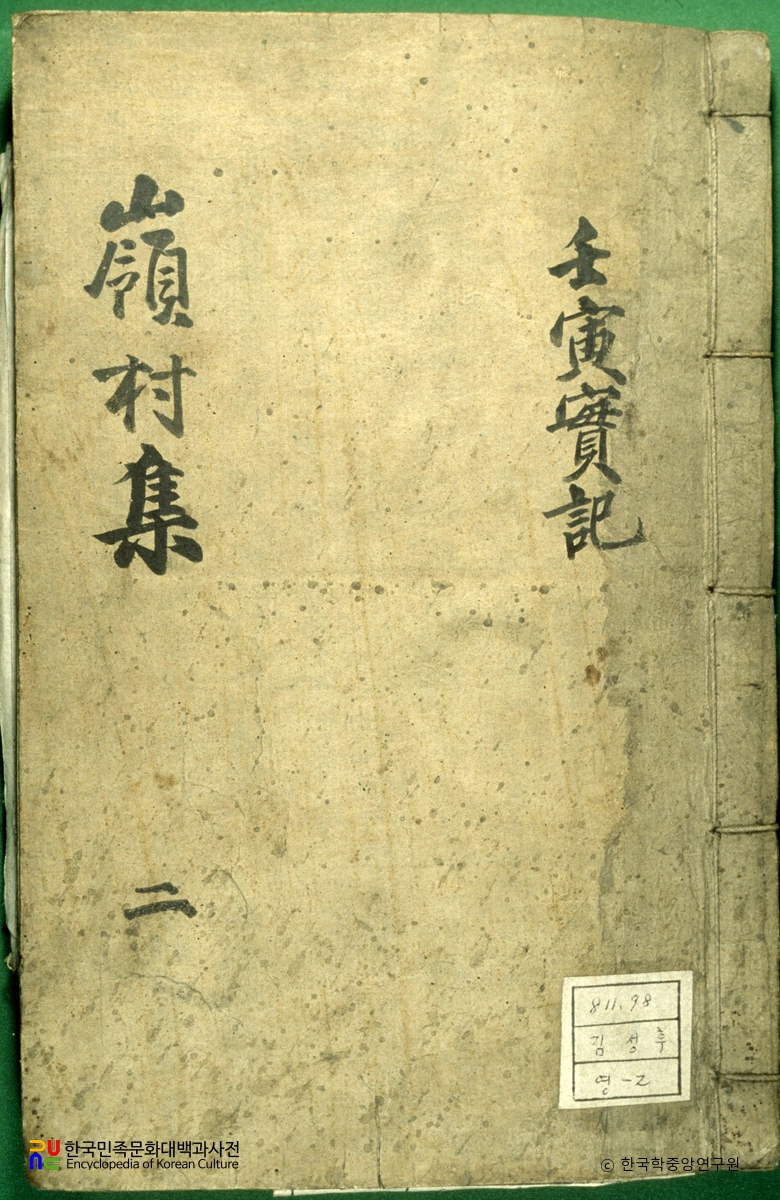 壬寅實記
嶺村集
二
811.98
김성후
영-2
한국민족문화대백과사전
Encyclopedia of Korean Culture
© 한국학중앙연구원